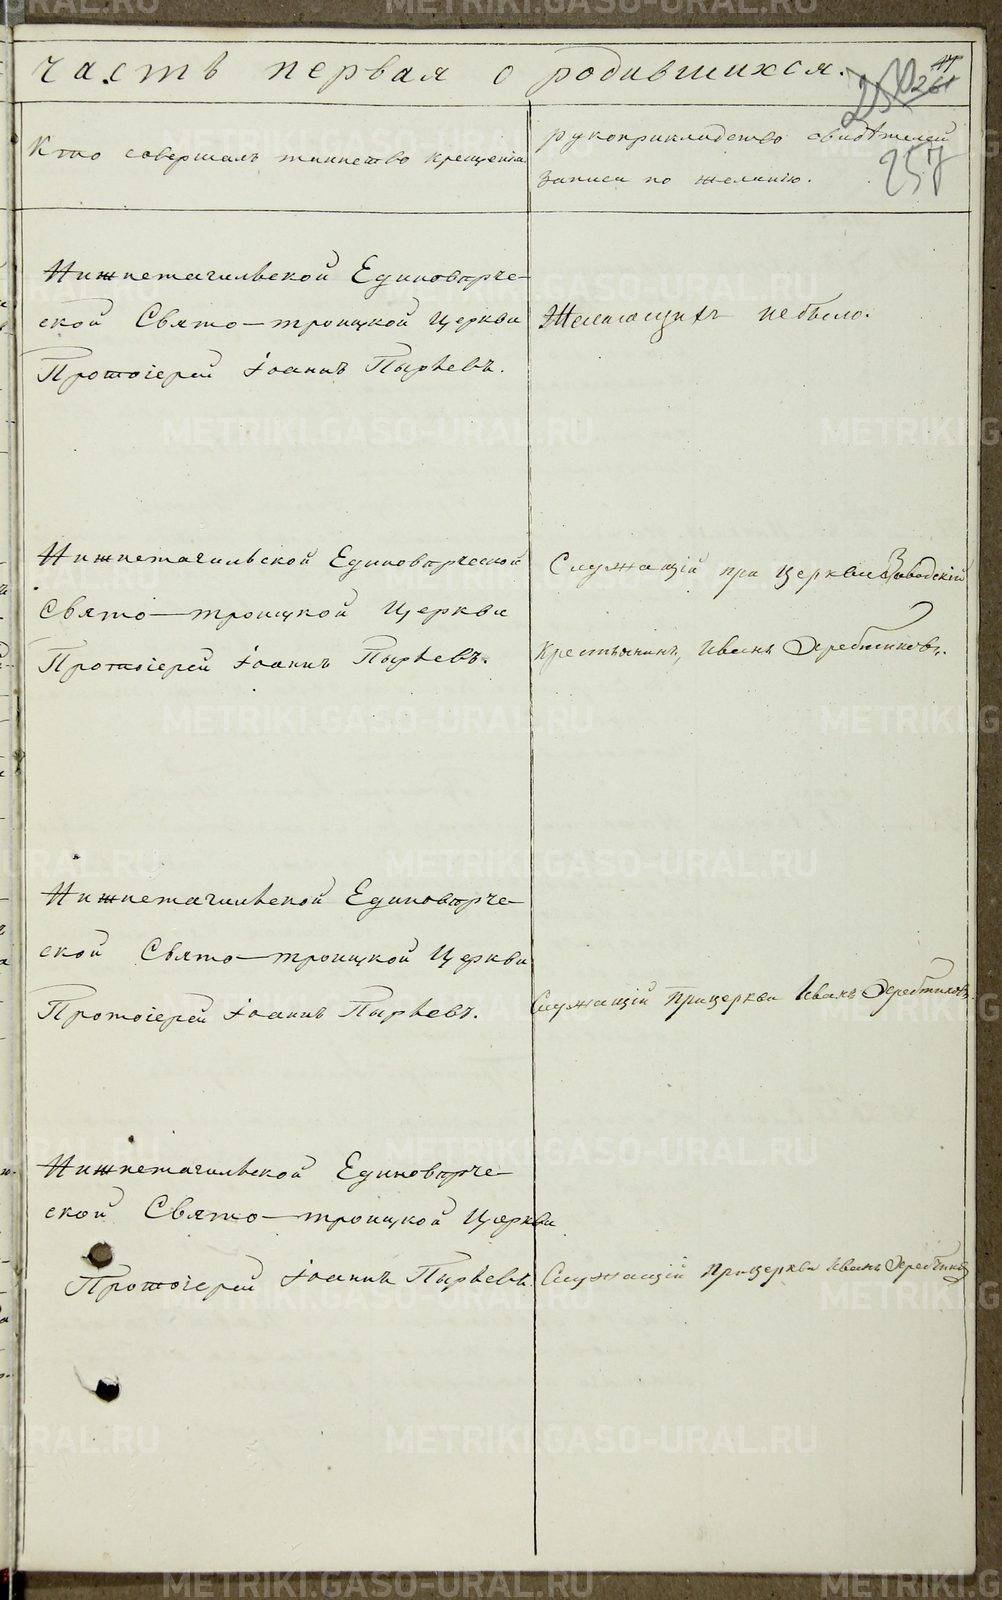 часть первая о родившихся.
257
Кто совершалъ таинство крещенія
рукоприкладство свидѣтелей
записи по желанію.
Нижнетагильской Единовѣрче-
ской Свято-троицкой Церкви
Протоіерей Іоаннъ Пырьевъ.
Желающихъ небыло.
Нижнетагильской Единовѣрческой
Свято-троицкой Церкви
Протоіерей Іоаннъ Пырьевъ.
Служащій при Церкви Заводскій
крестьянинъ, Иванъ
Нижнетагильской Единовѣрче-
ской Свято-троицкой Церкви
Протоіерей Іоаннъ Пырьевъ.
Служащій прицеркви Иванъ
Нижнетагильской Единовѣрче-
ской Свято-троицкой Церкви
Протоіерей Іоаннъ Пырьевъ
Служащій прицеркви Иванъ
METRIKI.GASO-URAL.RU